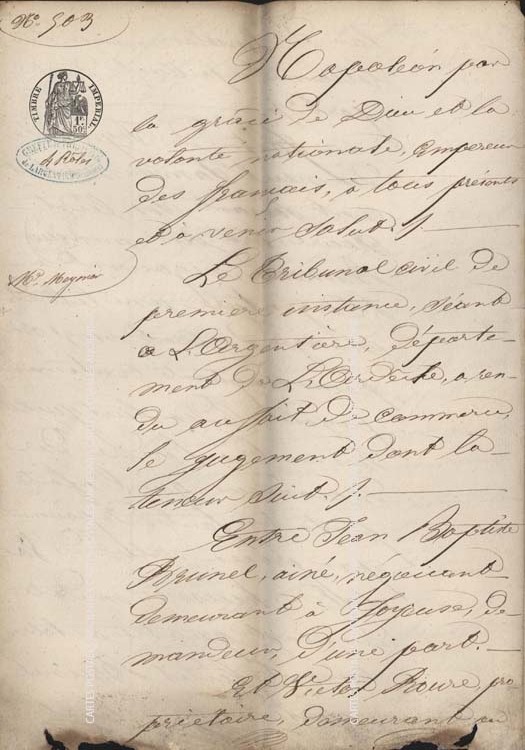 N° 503
Napoléon par
la grâce de Dieu et la
volonté nationale, empereur
des français, à tous présents
et à venir Salut. /.
TIMBRE IMPERIAL
1F
50c
4 Rôles
Mr Meynier
Le Tribunal civil de
première instance, séant
à L'Argentière, départe-
ment de L'Ardèche, a ren-
du au fait de commerce,
le jugement dont la
teneur suit. /.
Entre Jean Baptiste
Brunel, ainé, négociant
demeurant à Joyeuse, de-
mandeur, d'une part. -
Et Victor Roure, pro
priétaire, demeurant au